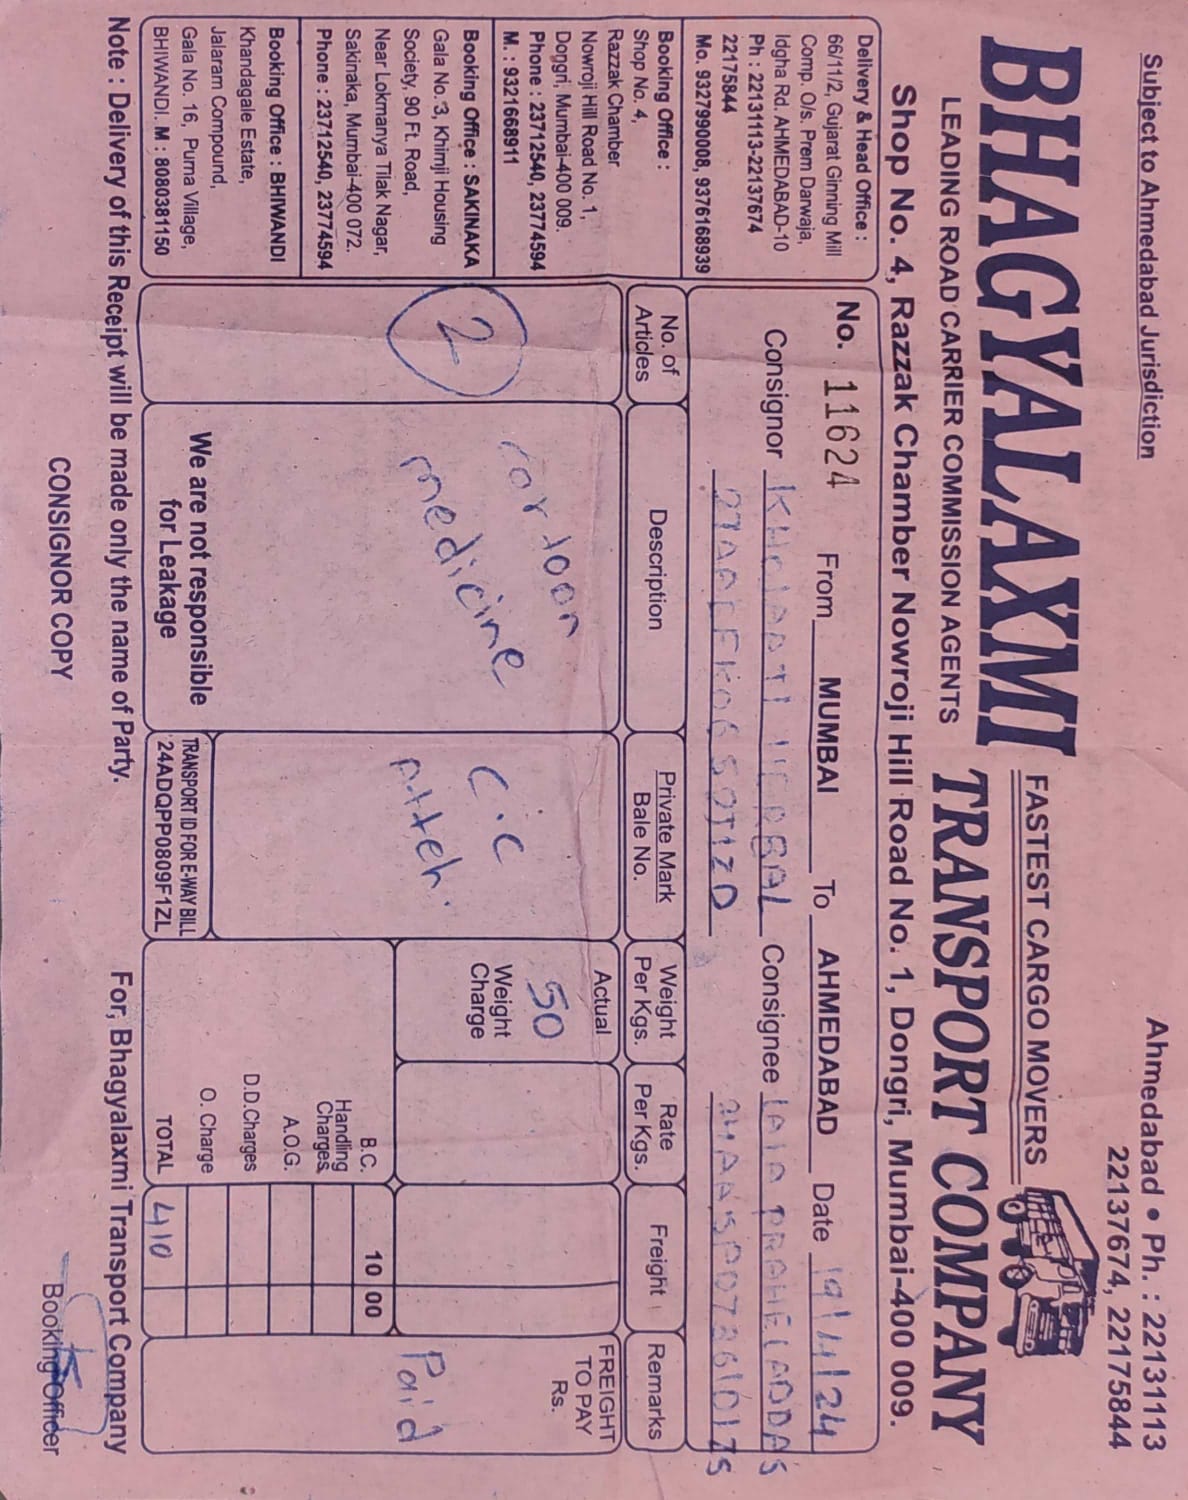 Subject to Ahmedabad Jurisdiction
Ahmedabad • Ph. : 22131113
22137674, 22175844
BHAGYALAXMI
FASTEST CARGO MOVERS
TRANSPORT COMPANY
LEADING ROAD CARRIER COMMISSION AGENTS
Shop No. 4, Razzak Chamber Nowroji Hill Road No. 1, Dongri, Mumbai-400 009.
Delivery & Head Office :
66/11/2, Gujarat Ginning Mill
Comp. O/s. Prem Darwaja,
Idgha Rd. AHMEDABAD-10
Ph : 22131113-22137674
22175844
Mo. 9327990008, 9376168939
Booking Office :
Shop No. 4,
Razzak Chamber
Nowroji Hill Road No. 1,
Dogri, Mumbai-400 009.
Phone : 23712540, 23774594
M. : 9321668911
Booking Office : SAKINAKA
Gala No. 3, Khimji Housing
Society, 90 Ft. Road,
Near Lokmanya Tilak Nagar,
Sakinaka, Mumbai-400 072.
Phone : 23712540, 23774594
Booking Office : BHIWANDI
Khandagale Estate,
Jalaram Compound,
Gala No. 16, Purna Village,
BHIWANDI. M : 8080381150
No. 11624 From MUMBAI To AHMEDABAD Date 19/11/24
Consignor HERBAL Consignee LALA PRAHELADDAS
No. of Articles
Description
Private Mark
Bale No.
Weight Per Kgs.
Rate Per Kgs.
Freight
Remarks
2
cortoon
medicine
C.C
pattch.
Actual
50
Weight
Charge
FREIGHT
TO PAY
Rs.
Paid
B.C. 10 00
Handling
Charges.
A.O.G.
D.D.Charges
O. Charge
TOTAL 410
We are not responsible
for Leakage
TRANSPORT ID FOR E-WAY BILL
24ADQPP0809F1ZL
Note : Delivery of this Receipt will be made only the name of Party.
For, Bhagyalaxmi Transport Company
CONSIGNOR COPY
Booking Officer